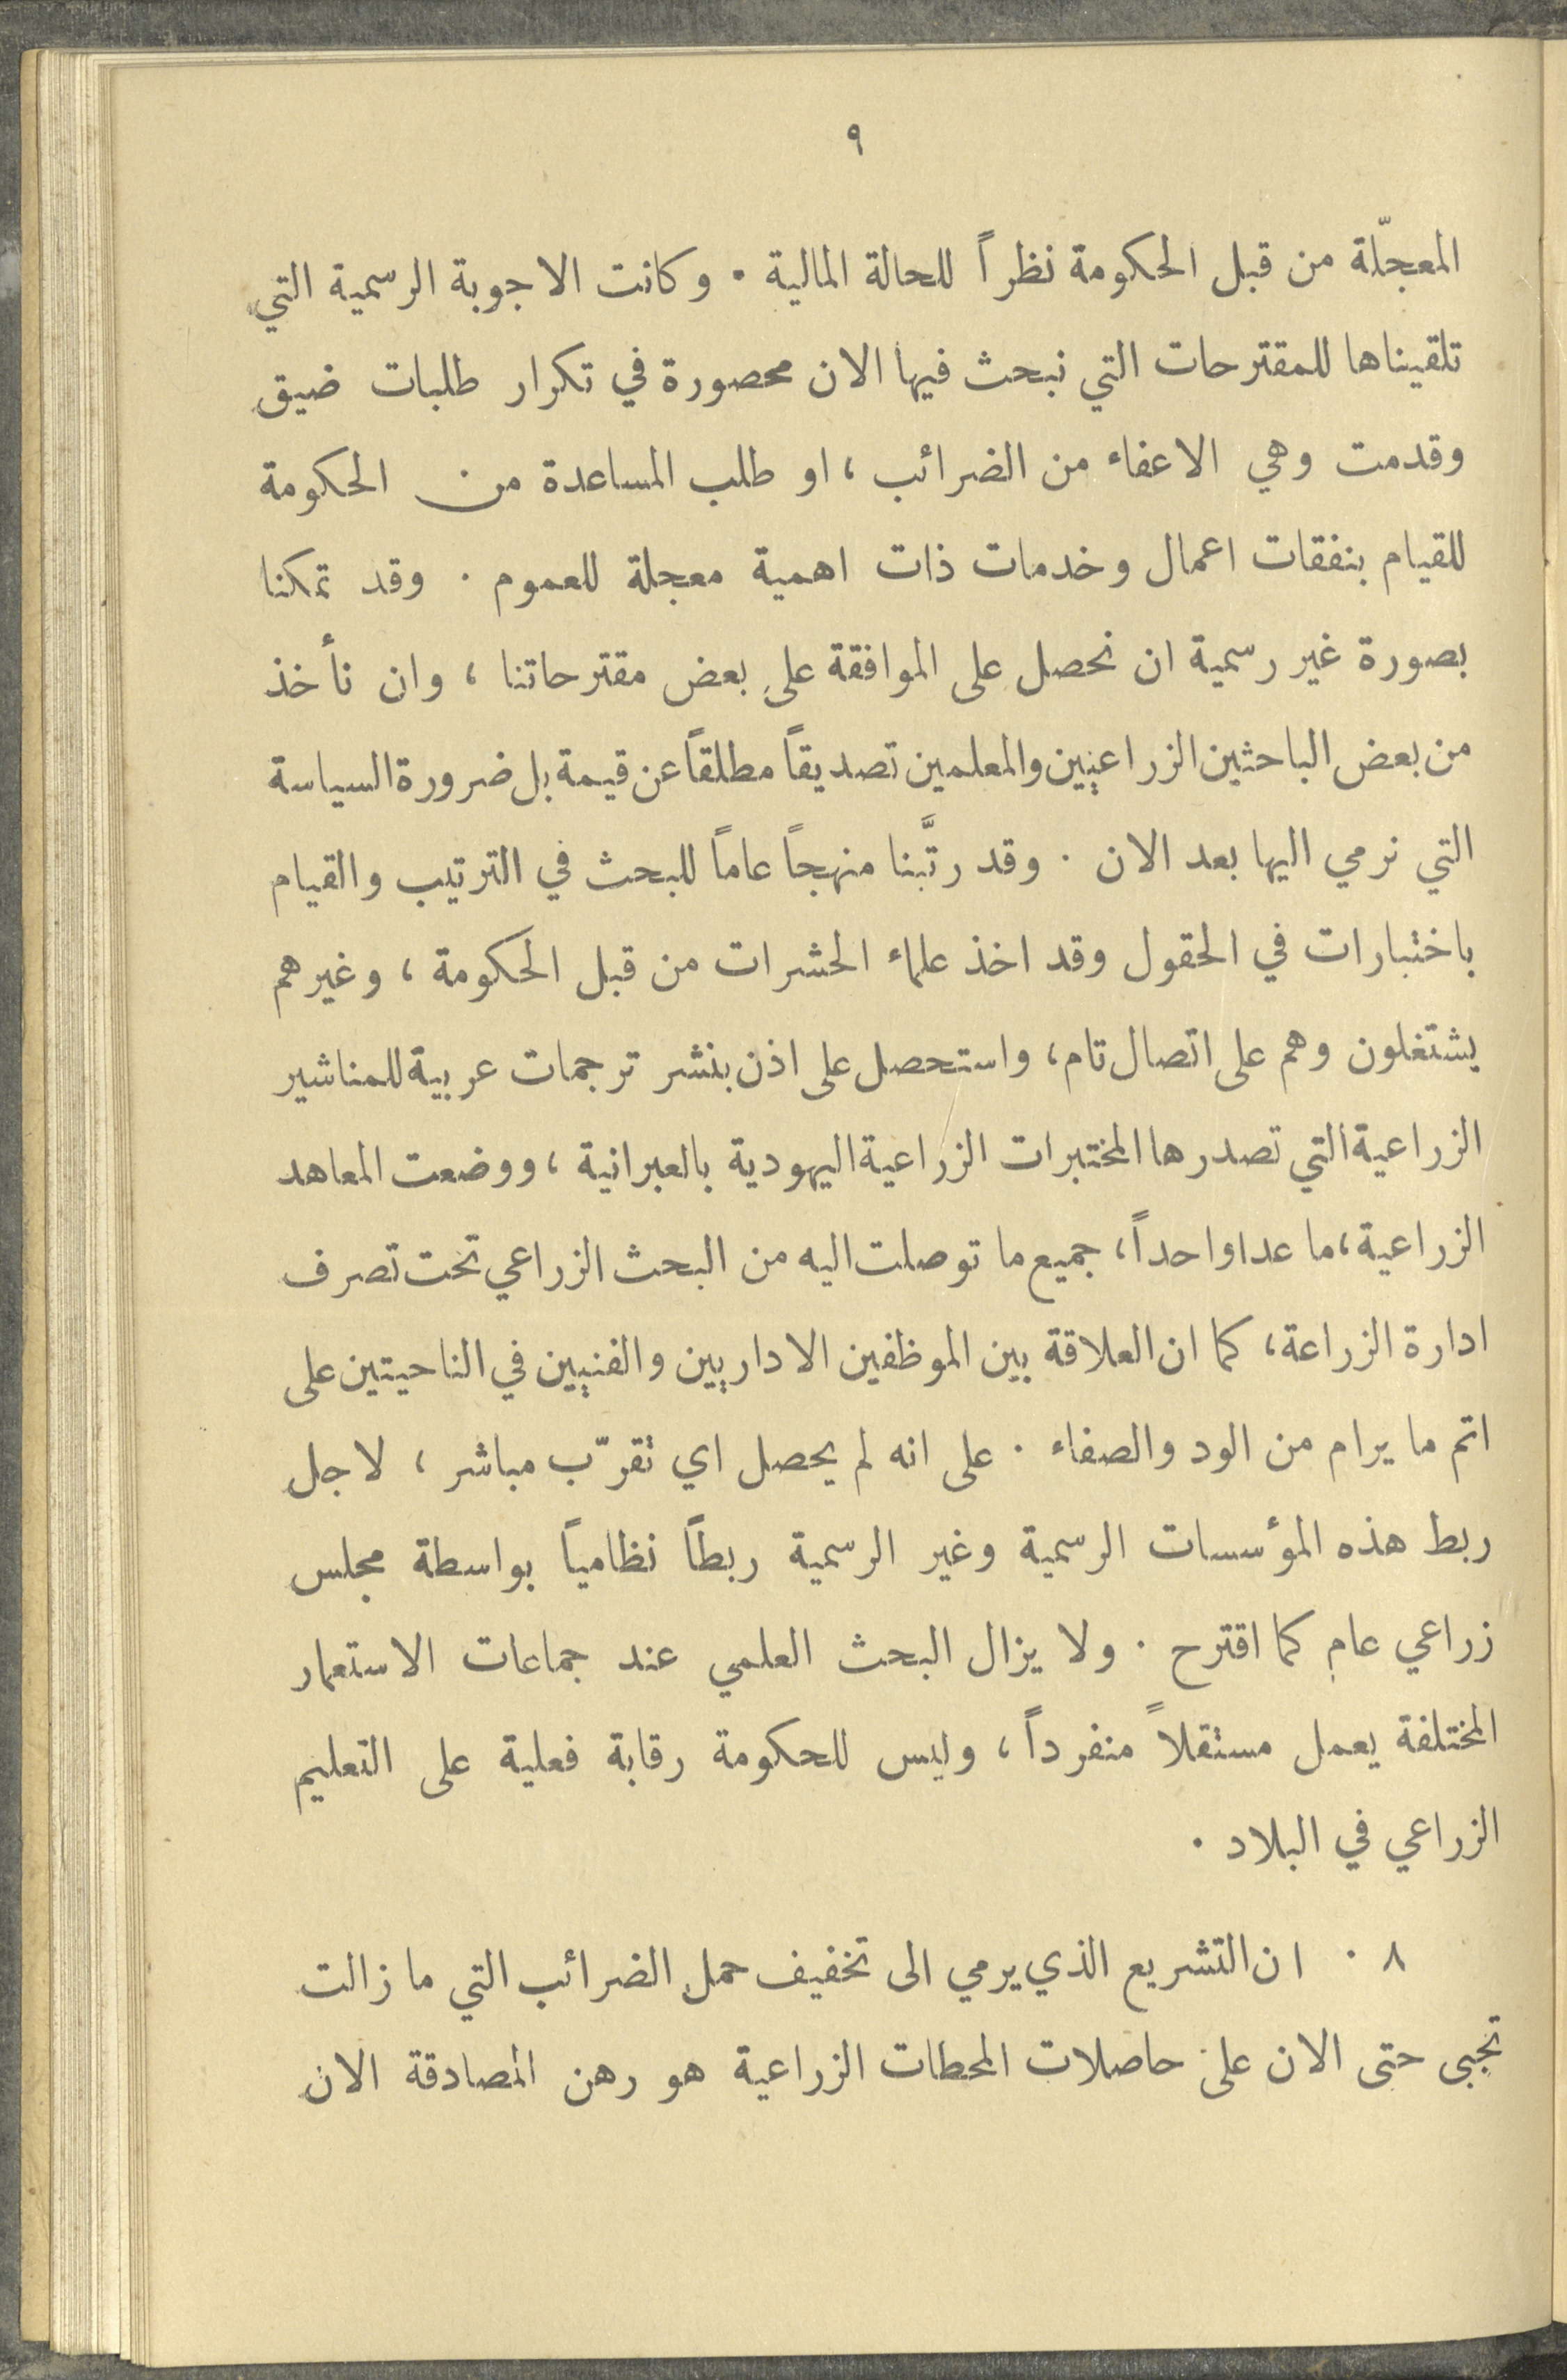 ٩
المعجّلة من قبل الحكومة نظراً للحالة المالية . وكانت الاجوبة الرسمية التي
تلقيناها للمقترحات التي نبحث فيها الان محصورة في تكرار طلبات ضيق
وقدمت وهي الاعفاء من الضرائب ، او طلب المساعدة من الحكومة
للقيام بنفقات اعمال وخدمات ذات اهمية معجلة للعموم . وقد تمكنا
بصورة غير رسمية ان نحصل على الموافقة على بعض مقترحاتنا ، وان نأخذ
من بعض الباحثين الزراعيين والمعلمين تصديقاً مطلقاً عن قيمة بل ضرورة السياسة
التي نرمي اليها بعد الان . وقد رتَّبنا منهجاً عاماً للبحث في الترتيب والقيام
باختبارات في الحقول وقد اخذ علماء الحشرات من قبل الحكومة ، وغيرهم
يشتغلون وهم على اتصال تام ، واستحصل على اذن بنشر ترجمات عربية للمناشير
الزراعية التي تصدرها المختبرات الزراعية اليهودية بالعبرانية ، ووضعت المعاهد
الزراعية ، ما عدا واحداً ، جميع ما توصلت اليه من البحث الزراعي تحت تصرف
ادارة الزراعة ، كما ان العلاقة بين الموظفين الاداريين والفنيين في الناحيتين على
اتم ما يرام من الود والصفاء . على انه لم يحصل اي تقرّب مباشر ، لاجل
ربط هذه المؤسسات الرسمية وغير الرسمية ربطاً نظامياً بواسطة مجلس
زراعي عام كما اقترح . ولا يزال البحث العلمي عند جماعات الاستعمار
المختلفة يعمل مستقلاً منفرداً ، وليس للحكومة رقابة فعلية على التعليم
الزراعي في البلاد .
٨ . ان التشريع الذي يرمي الى تخفيف حمل الضرائب التي ما زالت
تجبى حتى الان على حاصلات المحطات الزراعية هو رهن المصادقة الان